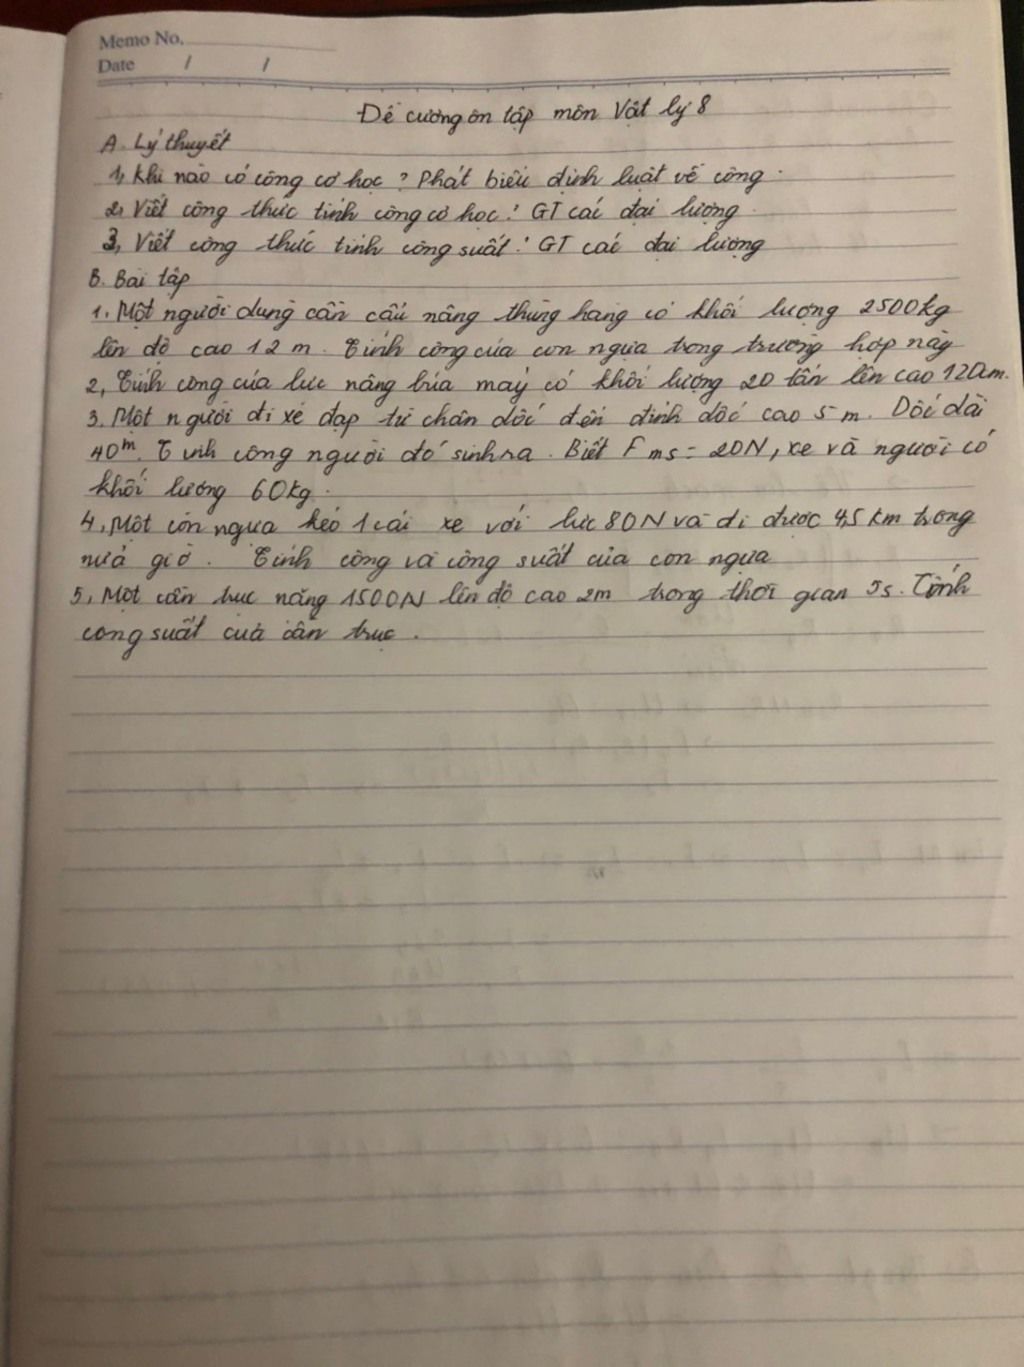 Memo No.
Date / /
Đề cương ôn tập môn Vật lý 8
A. Lý thuyết
1, Khi nào có công cơ học? Phát biểu định luật về công.
2, Viết công thức tính công cơ học? GT các đại lượng.
3, Viết công thức tính công suất? GT các đại lượng
B. Bài tập
1, Một người dùng cần cẩu nâng thùng hàng có khối lượng 2500kg
lên độ cao 12 m. Tính công của con ngựa trong trường hợp này
2, Tính công của lực nâng búa máy có khối lượng 20 tấn lên cao 120cm.
3. Một người đi xe đạp từ chân dốc đến đỉnh dốc cao 5 m. Dốc dài
40m. Tính công người đó sinh ra. Biết Fms = 20N, xe và người có
khối lượng 60kg.
4, Một con ngựa kéo 1 cái xe với lực 80N và đi được 4,5 km trong
nửa giờ. Tính công và công suất của con ngựa
5, Một cần trục nâng 1500N lên độ cao 2m trong thời gian 5s. Tính
công suất của cần trục.